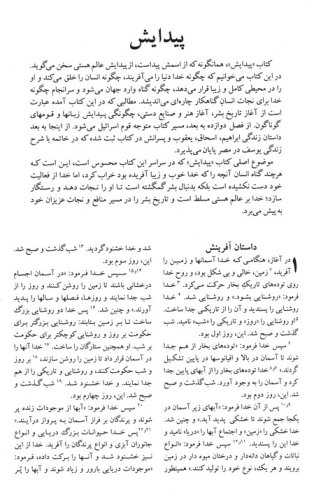 پیدایش
کتاب «پیدایش»، همانگونه که از اسمش پیداست، از پیدایش عالم هستی سخن می‌گوید.
در این کتاب می‌خوانیم که چگونه خدا دنیا را می‌آفریند، چگونه انسان را خلق می‌کند و او
را در محیطی کامل و زیبا قرار می‌دهد، چگونه گناه وارد جهان می‌شود و سرانجام چگونه
خدا برای نجات انسان گناهکار چاره‌ای می‌اندیشد. مطالبی که در این کتاب آمده عبارت
است از آغاز تاریخ بشر، آغاز هنر و صنایع دستی، چگونگی پیدایش زبانها و قومهای
گوناگون. از فصل دوازده به بعد، مسیر کتاب متوجه قوم اسرائیل می‌شود. از اینجا به بعد
داستان زندگی ابراهیم، اسحاق، یعقوب و پسرانش در کتاب ثبت شده که در خاتمه با شرح
زندگی یوسف در مصر پایان می‌پذیرد.
موضوع اصلی کتاب «پیدایش» که در سراسر این کتاب محسوس است، این است که
هرچند گناه انسان آنچه را که خدا خوب و زیبا آفریده بود خراب کرد، اما خدا از فعالیت
خود دست نکشیده است بلکه بدنبال بشر گمگشته است تا او را نجات دهد و رستگار
سازد. خدا بر عالم هستی مسلط است و تاریخ بشر را در مسیر منافع و نجات عزیزان خود
به پیش می‌برد.
داستان آفرینش
۱ در آغاز، هنگامی که خدا آسمانها و زمین را
آفرید، ۲ زمین، خالی و بی شکل بود، و روح خدا
روی توده‌های تاریک بخار حرکت می‌کرد. ۳ خدا
فرمود: «روشنایی بشود.» و روشنایی شد. ۴ خدا
روشنایی را پسندید و آن را از تاریکی جدا ساخت.
۵ او روشنایی را «روز» و تاریکی را «شب» نامید. شب
گذشت و صبح شد. این، روز اول بود.
۶ سپس خدا فرمود: «توده‌های بخار از هم جدا
شوند تا آسمان در بالا و اقیانوسها در پایین تشکیل
گردند.» ۷و۸ خدا توده‌های بخار را از آبهای پایین جدا
کرد و آسمان را به وجود آورد. شب گذشت و صبح
شد. این، روز دوم بود.
۹و۱۰ پس از آن خدا فرمود: «آبهای زیر آسمان در
یکجا جمع شوند تا خشکی پدید آید.» و چنین شد.
خدا خشکی را «زمین» و اجتماع آبها را «دریا» نامید و
خدا این را پسندید. ۱۱و۱۲ سپس خدا فرمود: «انواع
نباتات و گیاهان دانه‌دار و درختان میوه دار در زمین
برویند و هر یک، نوع خود را تولید کنند.» همینطور
شد و خدا خشنود گردید. ۱۳ شب گذشت و صبح شد.
این، روز سوم بود.
۱۴و۱۵ سپس خدا فرمود: «در آسمان اجسام
درخشانی باشند تا زمین را روشن کنند و روز را از
شب جدا نمایند و روزها، فصلها و سالها را پدید
آورند.» و چنین شد. ۱۶ پس خدا دو روشنایی بزرگ
ساخت تا بر زمین بتابند: روشنایی بزرگتر برای
حکومت بر روز و روشنایی کوچکتر برای حکومت
بر شب. او همچنین ستارگان را ساخت. ۱۷ خدا آنها را
در آسمان قرار داد تا زمین را روشن سازند، ۱۸ بر روز
و شب حکومت کنند، و روشنایی و تاریکی را از هم
جدا نمایند. و خدا خشنود شد. ۱۹ شب گذشت و
صبح شد. این، روز چهارم بود.
۲۰ سپس خدا فرمود: «آبها از موجودات زنده پر
شوند و پرندگان بر فراز آسمان به پرواز درآیند.»
۲۱و۲۲ پس خدا حیوانات بزرگ دریایی و انواع
جانوران آبزی و انواع پرندگان را آفرید. خدا از این
نیز خشنود شد و آنها را برکت داده، فرمود:
«موجودات دریایی بارور و زیاد شوند و آبها را پُر